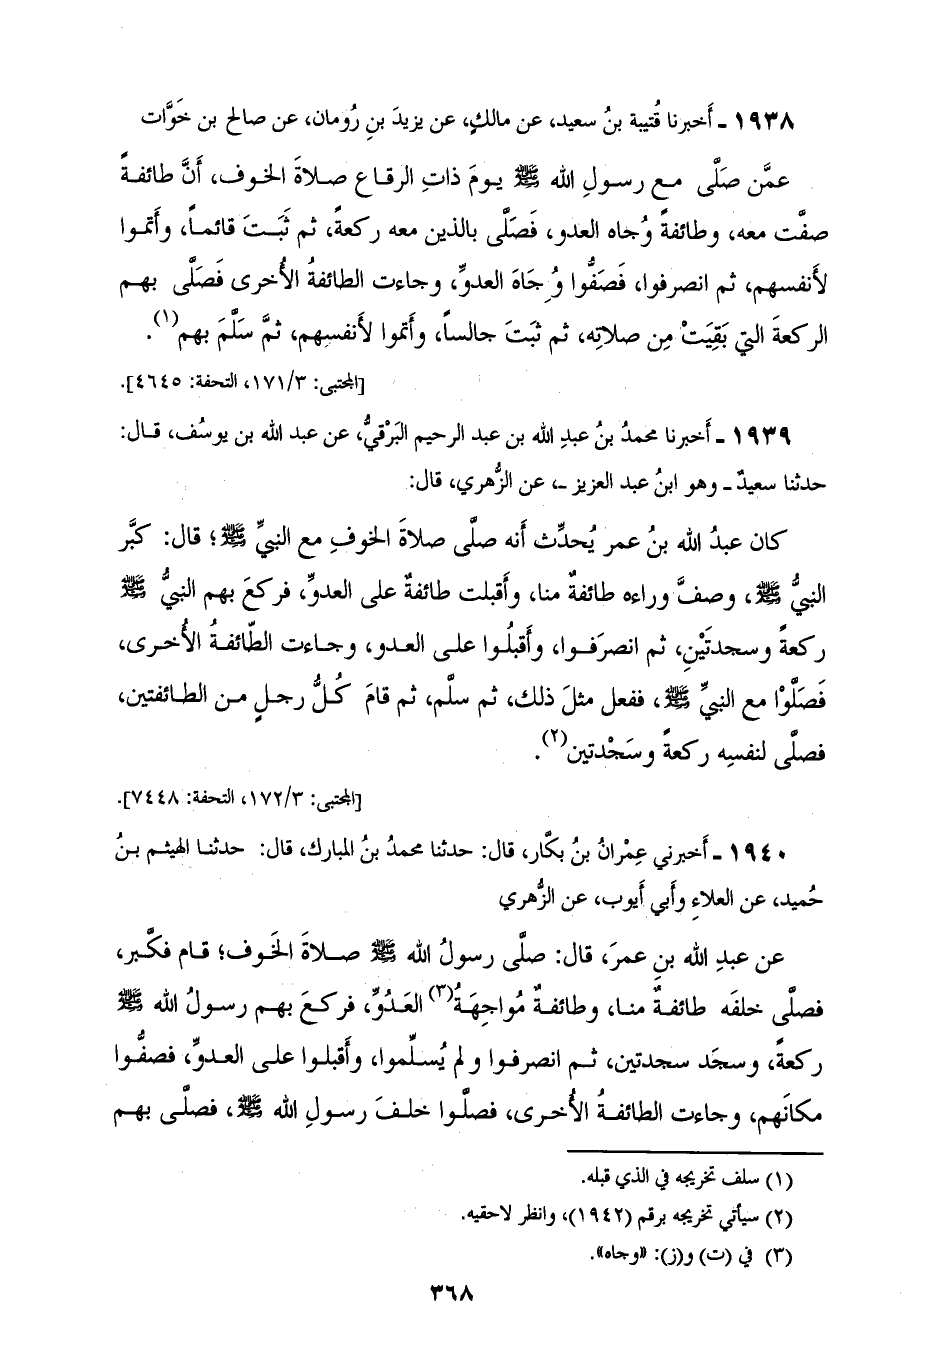 ١٩٣٨ ـ أَخبرنا قُتيبة بنُ سعيد، عن مالكٍ، عن يزيدَ بنِ رُومان، عن صالح بن خَوَّات
عمَّن صَلَّى مع رسولِ الله ﷺ يومَ ذاتِ الرقاع صلاةَ الخوف، أَنَّ طائفةً
صفَّت معه، وطائفةً وُجاه العدو، فَصَلَّى بالذين معه ركعةً، ثم ثَبَتَ قائماً، وأَتموا
لأَنفسهم، ثم انصرفوا، فَصَفُّوا وُِجَاهَ العدوِّ، وجاءت الطائفةُ الأُخرى فَصَلَّى بهم
الركعةَ التي بَقِيَتْ مِن صلاتِه، ثم ثبَتَ جالساً، وأَتموا لأَنفسِهم، ثمَّ سَلَّمَ بهم(١).
[المجتبى: ١٧١/٣، التحفة: ٤٦٤٥].
١٩٣٩ ـ أَخبرنا محمدُ بنُ عبدِ الله بن عبد الرحيم البَرْقيُّ، عن عبد الله بن يوسُف، قال:
حدثنا سعيدٌ ـ وهو ابنُ عبد العزيز ـ، عن الزُّهري، قال:
كان عبدُ الله بنُ عمر يُحدِّث أَنه صلَّى صلاةَ الخوفِ مع النبيِّ ﷺ؛ قال: كبَّر
النبيُّ ﷺ، وصفَّ وراءه طائفةٌ منا، وأَقبلت طائفةٌ على العدوِّ، فركعَ بهم النبيُّ ﷺ
ركعةً وسجدتَيْنِ، ثم انصرَفوا، وأَقبلُوا على العدو، وجاءت الطّائفةُ الأُخرى،
فَصَلَّوْا مع النبيِّ ﷺ، ففعل مثلَ ذلك، ثم سلَّم، ثم قامَ كُلُّ رجلٍ من الطائفتين،
فصلَّى لنفسِه ركعةً وسَجْدتين(٢).
[المجتبى: ١٧٢/٣، التحفة: ٧٤٤٨].
١٩٤٠ ـ أَخبرني عِمْرانُ بنُ بكَّار، قال: حدثنا محمدُ بنُ المبارك، قال: حدثنا الهيثم بنُ
حُميد، عن العلاءِ وأَبي أَيوب، عن الزُّهري
عن عبدِ الله بنِ عمرَ، قال: صلَّى رسولُ الله ﷺ صلاةَ الخَوف؛ قام فكَّبر،
فصلَّى خلفَه طائفةٌ منا، وطائفةٌ مُواجِهَةُ(٣) العَدُوِّ، فركعَ بهم رسولُ الله ﷺ
ركعةً، وسجَد سجدتين، ثم انصرفوا ولم يُسلِّموا، وأَقبلوا على العدوِّ، فصفُّوا
مكانَهم، وجاءت الطائفةُ الأُخرى، فصلَّوا خلفَ رسولِ الله ﷺ، فصلَّى بهم
(١) سلف تخريجه في الذي قبله.
(٢) سيأتي تخريجه برقم (١٩٤٢)، وانظر لاحقيه.
(٣) في (ت) و(ز): «وجاه».
٣٦٨